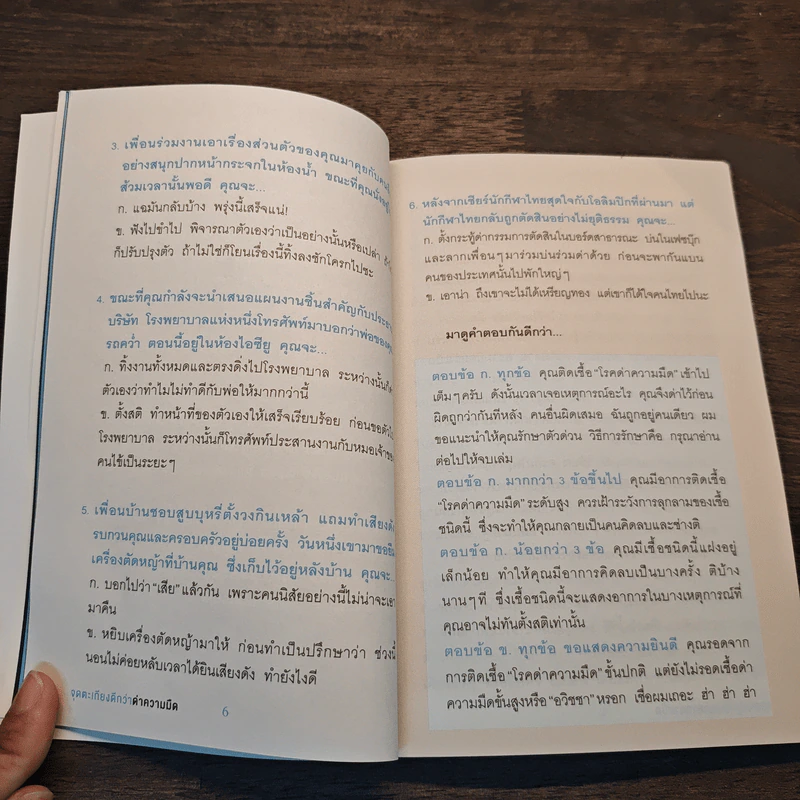 3. เพื่อนร่วมงานเอาเรื่องส่วนตัวของคุณมาคุยกับคน
อย่างสนุกปากหน้ากระจกในห้องน้ำ ขณะที่คุณนั่งอยู่
ส้วมเวลานั้นพอดี คุณจะ...
ก. แฉมันกลับบ้าง พรุ่งนี้เสร็จแน่!
ข. ฟังไปขำไป พิจารณาตัวเองว่าเป็นอย่างนั้นหรือเปล่า
ก็ปรับปรุงตัว ถ้าไม่ใช่ก็โยนเรื่องนี้ทิ้งลงชักโครกไปซะ
4. ขณะที่คุณกำลังจะนำเสนอแผนงานชิ้นสำคัญกับประธาน
บริษัท โรงพยาบาลแห่งหนึ่งโทรศัพท์มาบอกว่าพ่อของคุณ
รถคว่ำ ตอนนี้อยู่ในห้องไอซียู คุณจะ...
ก. ทิ้งงานทั้งหมดและตรงดิ่งไปโรงพยาบาล ระหว่างนั้นก็
ตัวเองว่าทำไมไม่ทำดีกับพ่อให้มากกว่านี้
ข. ตั้งสติ ทำหน้าที่ของตัวเองให้เสร็จเรียบร้อย ก่อนขอตัวไป
โรงพยาบาล ระหว่างนั้นก็โทรศัพท์ประสานงานกับหมอเจ้าของ
คนไข้เป็นระยะๆ
5. เพื่อนบ้านชอบสูบบุหรี่ตั้งวงกินเหล้า แถมทำเสียงดัง
รบกวนคุณและครอบครัวอยู่บ่อยครั้ง วันหนึ่งเขามาขอยืม
เครื่องตัดหญ้าที่บ้านคุณ ซึ่งเก็บไว้อยู่หลังบ้าน คุณจะ...
ก. บอกไปว่า “เสีย” แล้วกัน เพราะคนนิสัยอย่างนี้ไม่น่าจะเอา
มาคืน
ข. หยิบเครื่องตัดหญ้ามาให้ ก่อนทำเป็นปรึกษาว่า ช่วงนี้
นอนไม่ค่อยหลับเวลาได้ยินเสียงดัง ทำยังไงดี
จุดตะเกียงดีกว่าด่าความมืด
6
6. หลังจากเชียร์นักกีฬาไทยสุดใจกับโอลิมปิกที่ผ่านมา แต่
นักกีฬาไทยกลับถูกตัดสินอย่างไม่ยุติธรรม คุณจะ...
ก. ตั้งกระทู้ด่ากรรมการตัดสินในบอร์ดสาธารณะ บ่นในเฟซบุ๊ก
และลากเพื่อนๆ มาร่วมบ่นร่วมด่าด้วย ก่อนจะพากันแบน
คนของประเทศนั้นไปพักใหญ่ๆ
ข. เอาน่า ถึงเขาจะไม่ได้เหรียญทอง แต่เขาก็ได้ใจคนไทยไปนะ
มาดูคำตอบกันดีกว่า...
ตอบข้อ ก. ทุกข้อ คุณติดเชื้อ “โรคด่าความมืด” เข้าไป
เต็มๆ ครับ ดังนั้นเวลาเจอเหตุการณ์อะไร คุณจึงด่าไว้ก่อน
ผิดถูกว่ากันทีหลัง คนอื่นผิดเสมอ ฉันถูกอยู่คนเดียว ผม
ขอแนะนำให้คุณรักษาตัวด่วน วิธีการรักษาคือ กรุณาอ่าน
ต่อไปให้จบเล่ม
ตอบข้อ ก. มากกว่า 3 ข้อขึ้นไป คุณมีอาการติดเชื้อ
“โรคด่าความมืด” ระดับสูง ควรเฝ้าระวังการลุกลามของเชื้อ
ชนิดนี้ ซึ่งจะทำให้คุณกลายเป็นคนคิดลบและช่างติ
ตอบข้อ ก. น้อยกว่า 3 ข้อ คุณมีเชื้อชนิดนี้แฝงอยู่
เล็กน้อย ทำให้คุณมีอาการคิดลบเป็นบางครั้ง ติบ้าง
นานๆ ที ซึ่งเชื้อชนิดนี้จะแสดงอาการในบางเหตุการณ์ที่
คุณอาจไม่ทันตั้งสติเท่านั้น
ตอบข้อ ข. ทุกข้อ ขอแสดงความยินดี คุณรอดจาก
การติดเชื้อ “โรคด่าความมืด” ขั้นปกติ แต่ยังไม่รอดเชื้อด่า
ความมืดขั้นสูงหรือ “อวิชชา” หรอก เชื่อผมเถอะ ฮ่า ฮ่า ฮ่า